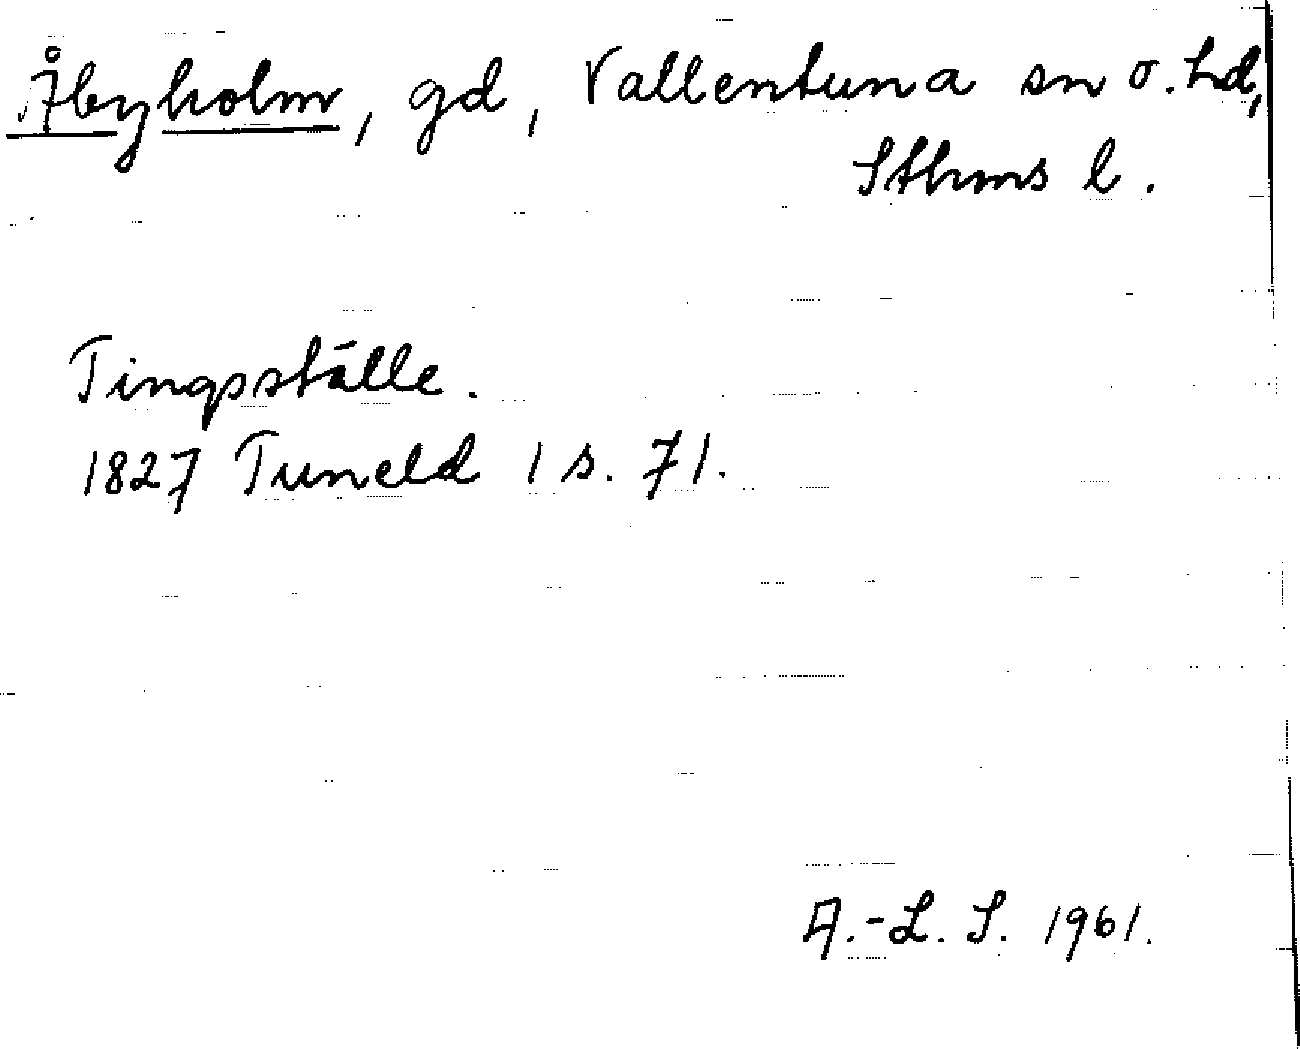 Åbyholm, gd, Vallentuna sn o. hd,
Sthms l.
Tingsställe.
1827 Tuneld 1 s. 71.
A.-L. S. 1961.